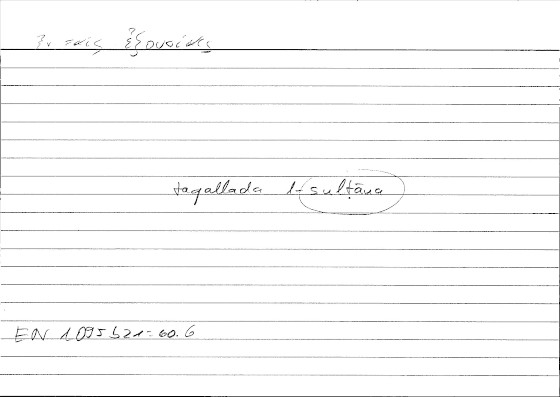 ἐν ταῖς ἐξουσίαις
taqallada l-sulṭāna
EN 1095b21=60.6